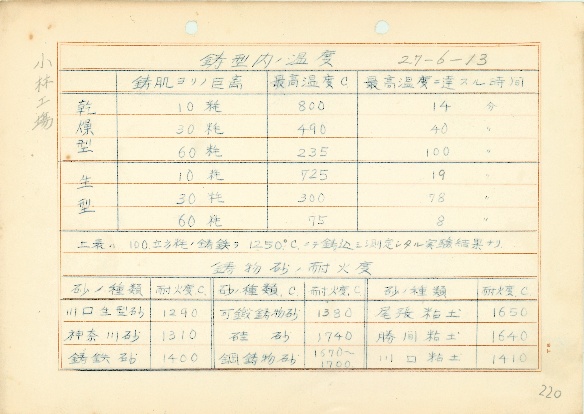 小林工場
鋳型内ノ温度 27-6-13
鋳肌ヨリノ巨离 最高温度C 最高温度ニ達スル時間
乾燥型 10 粍 800 14 分
30 粍 490 40 〃
60 粍 235 100 〃
生型 10 粍 725 19 〃
30 粍 300 78 〃
60 粍 75 8 〃
上表ハ 100 粍ノ鋳鉄ヲ 1250°C ニテ鋳込ミ測定シタル実験結果ナリ
鋳物砂ノ耐火度
砂ノ種類 耐火度C 砂ノ種類.C 耐火度C 砂ノ種類 耐火度C
川口生型砂 1290 可鍛鋳物砂 1380 尾張粘土 1650
神奈川砂 1310 硅砂 1740 勝間粘土 1640
鋳鉄砂 1400 鋼鋳物砂 1570~1700 川口粘土 1410
220